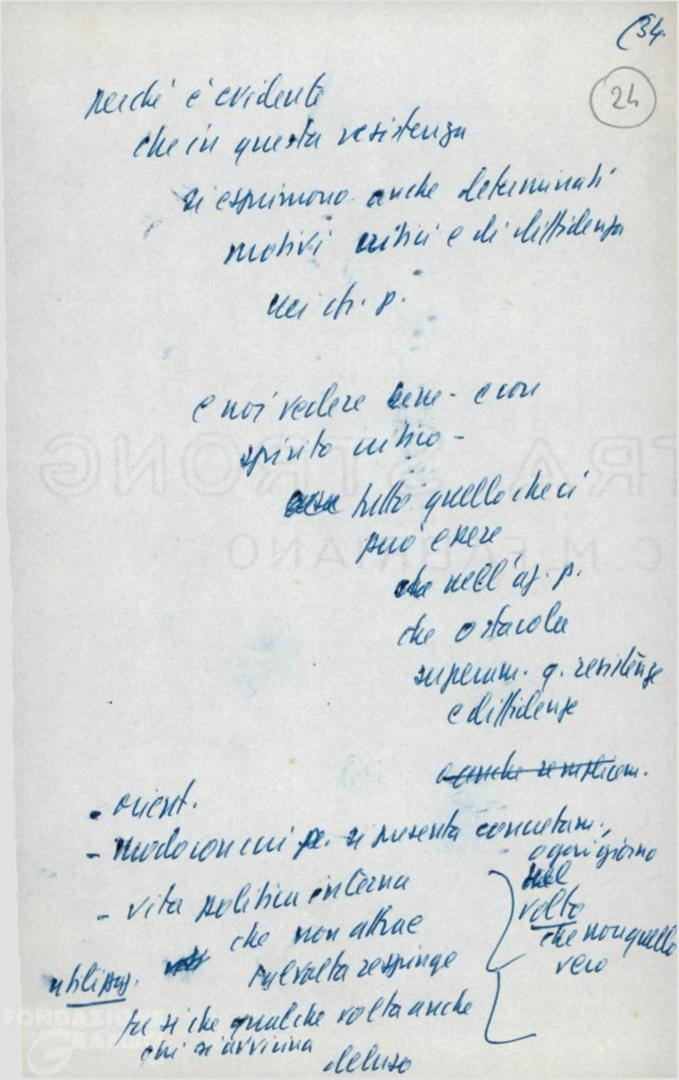 (34.
24
perché è evidente
che in questa resistenza
si esprimono anche determinati
motivi critici e di diffidenza
nei ch. p.
e noi vedere bene - e con
spirito critico -
tutto quello che ci
può essere
che nell'az. p.
che ostacola
superam. q. resistenze
e diffidenze
e anche semplicem.
- orient.
- modo con cui p. si presenta concretam.,
ogni giorno
nel
volto
che non quello
vero
- vita politica interna
che non attrae
talvolta respinge
utilizzaz.
fa sì che qualche volta anche
chi si avvicina
deluso
TRA STRONG
C.M. FABRIANO
FONDAZIONE
GRAMSCI